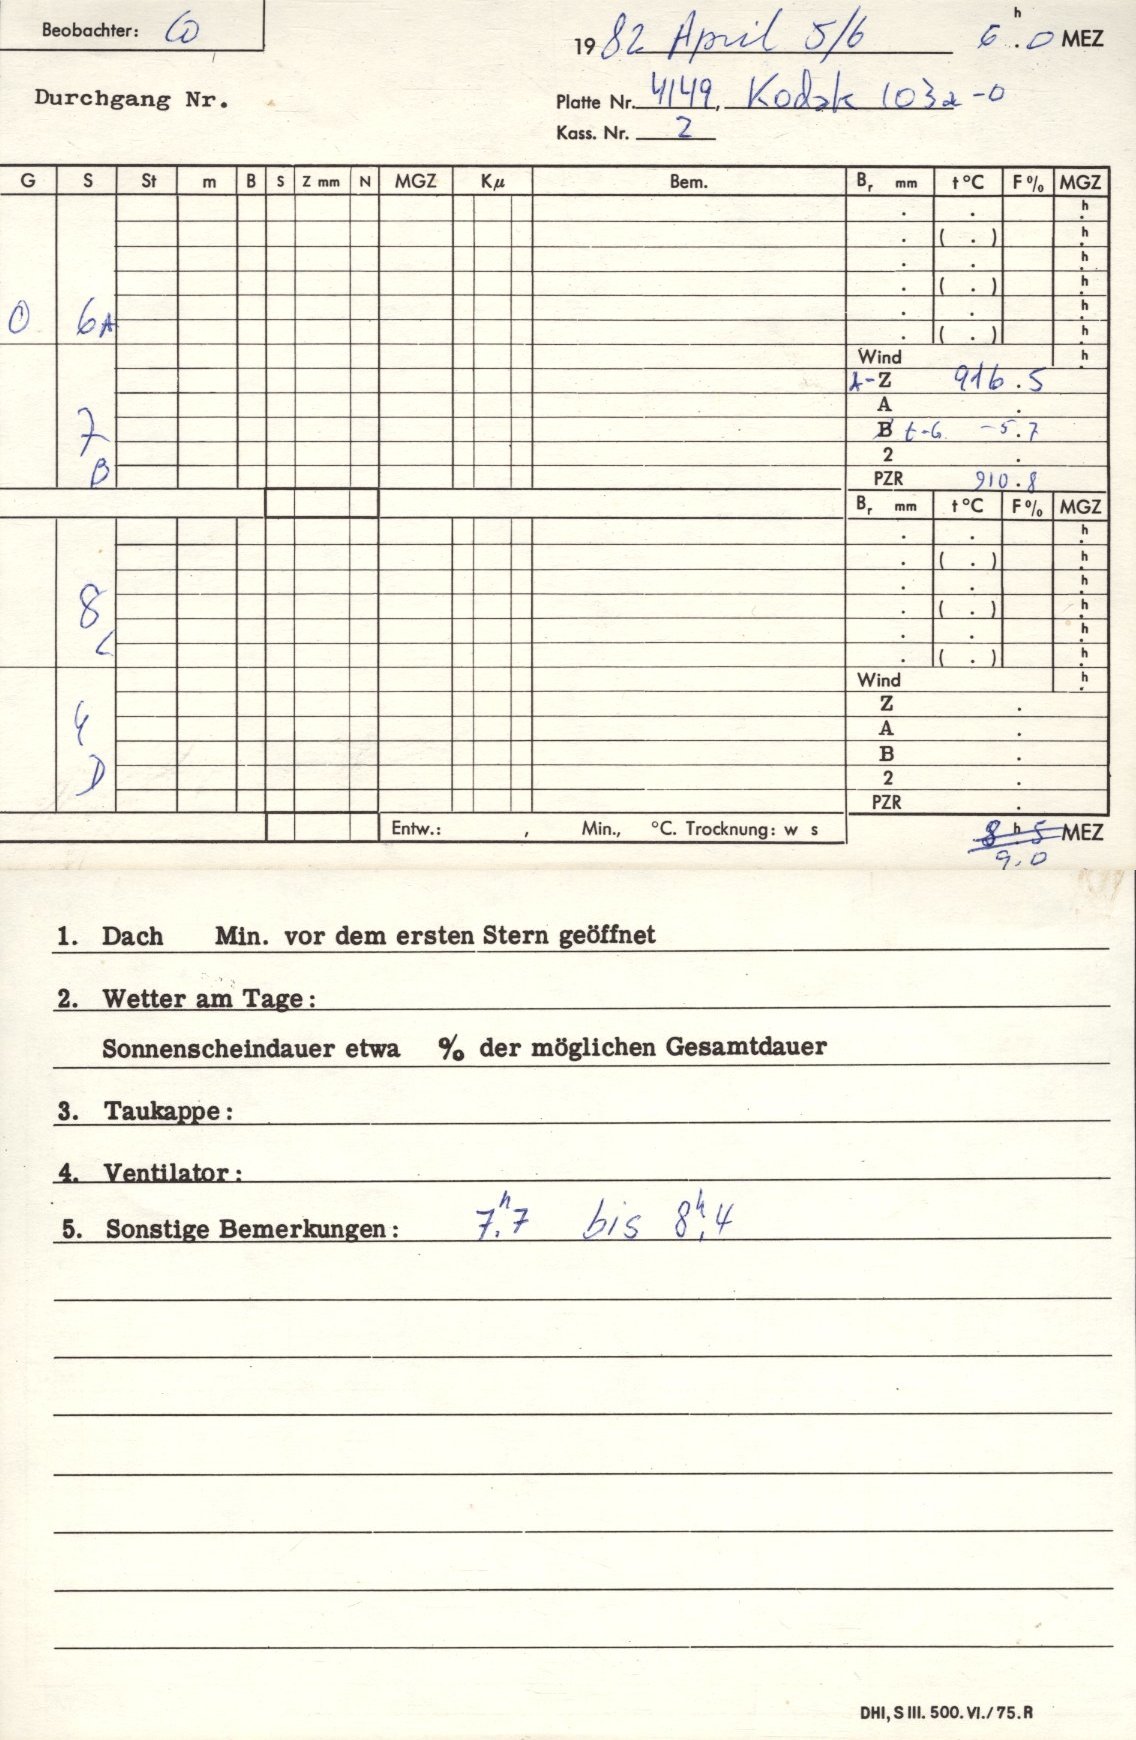 Beobachter: CO
1982 April 5/6 6 h . 0 MEZ
Durchgang Nr.
Platte Nr. 4149, Kodak 103a-0
Kass. Nr. 2
G S St m B S Z mm N MGZ Kμ Bem. Br mm t °C F % MGZ
. . h
. ( . ) h
. . h
. ( . ) h
. . h
0 6 A . ( . ) h
Wind h
A-Z 916.5
A .
7 B t-G -5.7
2 .
B PZR 910.8
Br mm t °C F % MGZ
. . h
. ( . ) h
. . h
8 . ( . ) h
. . h
C . ( . ) h
Wind h
4 Z .
A .
B .
D 2 .
PZR .
Entw.: , Min., °C. Trocknung: w s 8 h . 5 MEZ
9.0
1. Dach Min. vor dem ersten Stern geöffnet
2. Wetter am Tage:
Sonnenscheindauer etwa % der möglichen Gesamtdauer
3. Taukappe:
4. Ventilator:
5. Sonstige Bemerkungen: 7h.7 bis 8h.4
DHI, S III. 500. VI. / 75. R